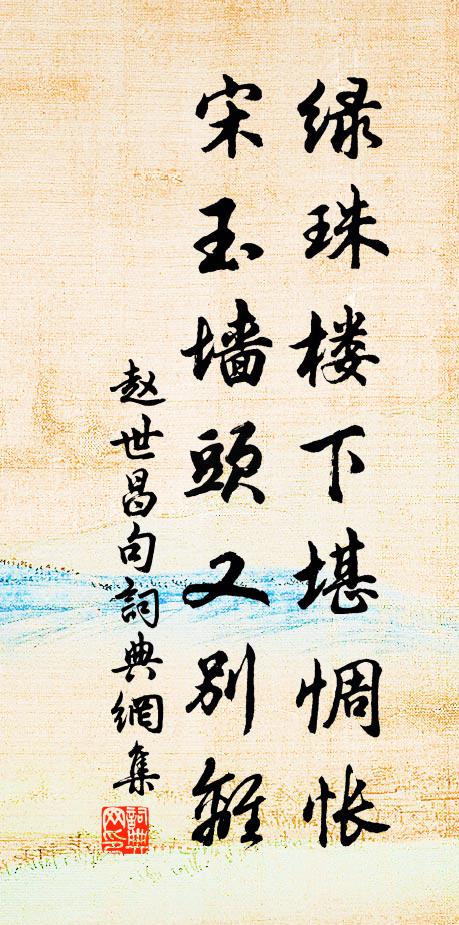 绿珠楼下堪惆怅
宋玉墙頭又别離
赵世昌句詞典網集
詞典网印